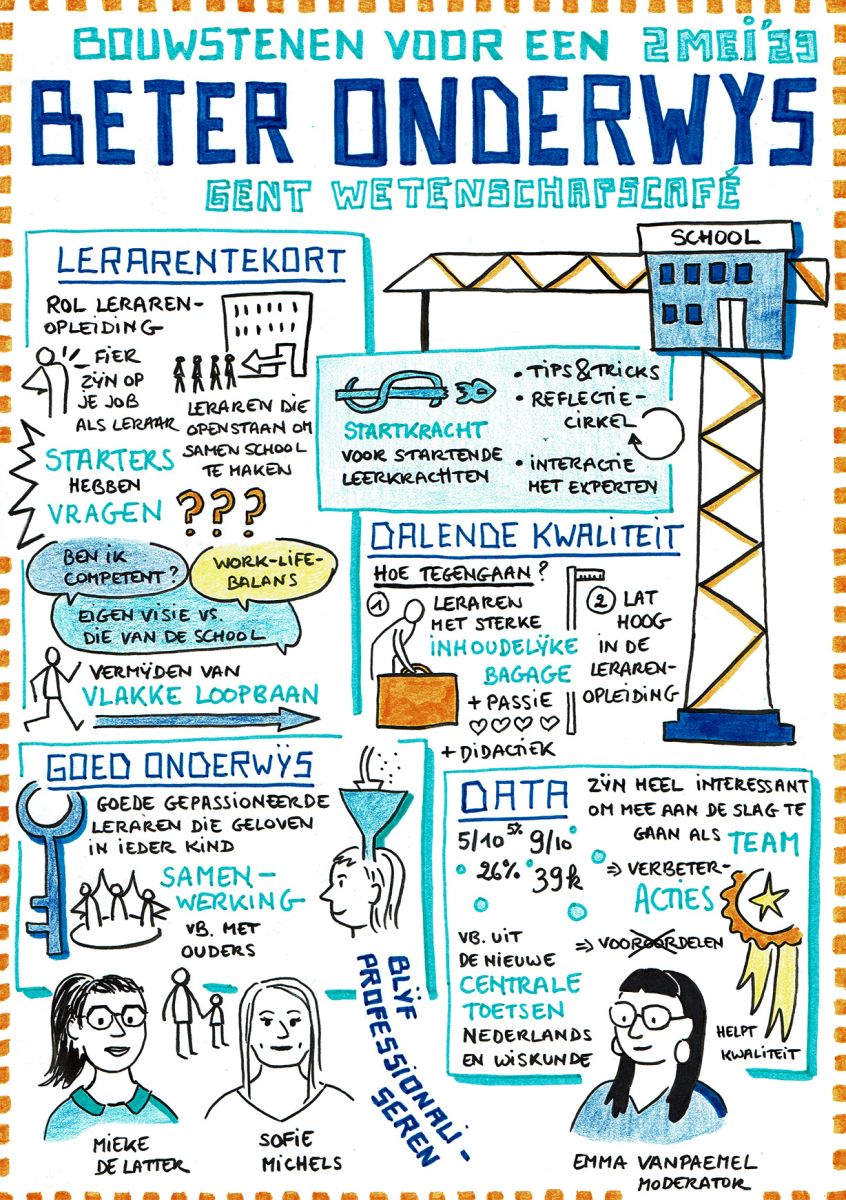 BOUWSTENEN VOOR EEN
2 MEI '23
BETER ONDERWYS
GENT WETENSCHAPSCAFÉ
SCHOOL
LERARENTEKORT
ROL LERAREN-
OPLEIDING
FIER
ZŸN OP
JE JOB
ALS LERAAR
LERAREN DIE
OPENSTAAN OM
SAMEN SCHOOL
TE MAKEN
STARTERS
HEBBEN
VRAGEN ???
BEN IK
COMPETENT?
WORK-LIFE-
BALANS
EIGEN VISIE VS.
DIE VAN DE SCHOOL
VERMŸDEN VAN
VLAKKE LOOPBAAN
STARTKRACHT
VOOR STARTENDE
LEERKRACHTEN
• TIPS & TRICKS
• REFLECTIE-
CIRKEL
• INTERACTIE
MET EXPERTEN
DALENDE KWALITEIT
HOE TEGENGAAN?
1 LERAREN
MET STERKE
INHOUDELŸKE
BAGAGE
+ PASSIE
+ DIDACTIEK
2 LAT
HOOG
IN DE
LERAREN-
OPLEIDING
GOED ONDERWŸS
GOEDE GEPASSIONEERDE
LERAREN DIE GELOVEN
IN IEDER KIND
SAMEN-
WERKING
VB. MET
OUDERS
BLŸF
PROFESSIONALI-
SEREN
DATA
5/10 5% 9/10
26% 39k
ZŸN HEEL INTERESSANT
OM MEE AAN DE SLAG TE
GAAN ALS TEAM
⇒ VERBETER-
ACTIES
⇒ VOOROORDELEN
VB. UIT
DE NIEUWE
CENTRALE
TOETSEN
NEDERLANDS
EN WISKUNDE
HELPT
KWALITEIT
MIEKE
DE LATTER
SOFIE
MICHELS
EMMA VANPAEMEL
MODERATOR